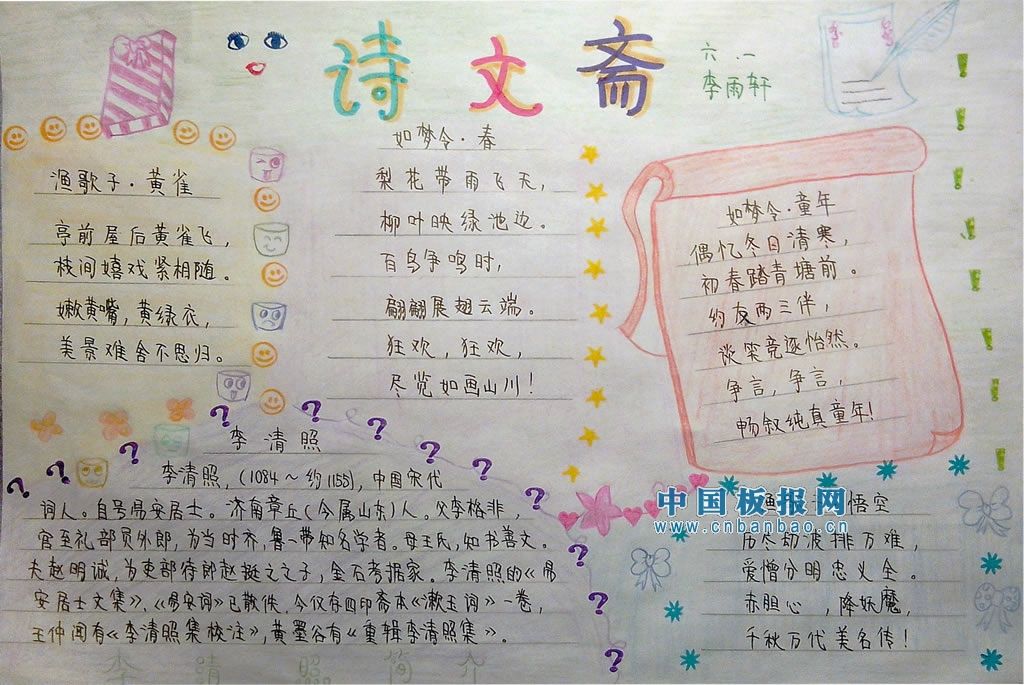 诗文斋
六.一
李雨轩
渔歌子·黄雀
亭前屋后黄雀飞，
枝间嬉戏紧相随。
嫩黄嘴，黄绿衣，
美景难舍不思归。
如梦令·春
梨花带雨飞天，
柳叶映绿池边。
百鸟争鸣时，
翩翩展翅云端。
狂欢，狂欢，
尽览如画山川！
如梦令·童年
偶忆冬日清寒，
初春踏青塘前。
约友两三伴，
谈笑竞逐怡然。
争言，争言，
畅叙纯真童年！
李清照
李清照，(1084～约1155)，中国宋代
词人。自号易安居士。济南章丘(今属山东)人。父李格非，
官至礼部员外郎，为当时齐，鲁一带知名学者。母王氏，知书善文。
夫赵明诚，为吏部侍郎赵挺之之子，金石考据家。李清照的《易
安居士文集》、《易安词》已散佚。今仅有四印斋本《漱玉词》一卷，
王仲闻有《李清照集校注》，黄墨谷有《重辑李清照集》。
李清照简介
中国板报网
www.cnbanbao.cn
渔 悟空
历尽劫波排万难，
爱憎分明忠义全。
赤胆心，降妖魔，
千秋万代美名传！